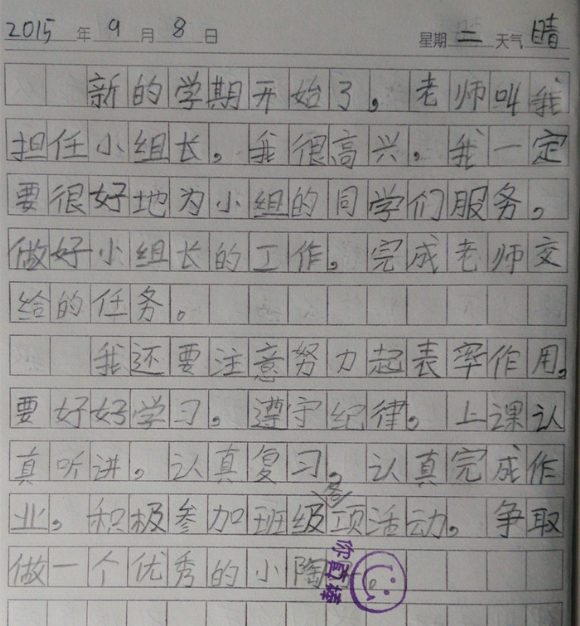 2015 年 9 月 8 日 星期 二 天气 晴
新的学期开始了。老师叫我
担任小组长。我很高兴。我一定
要很好地为小组的同学们服务。
做好小组长的工作。完成老师交
给的任务。
我还要注意努力起表率作用。
要好好学习。遵守纪律。上课认
真听讲。认真复习。认真完成作
业。积极参加班级各项活动。争取
做一个优秀的小陶子。
你真棒